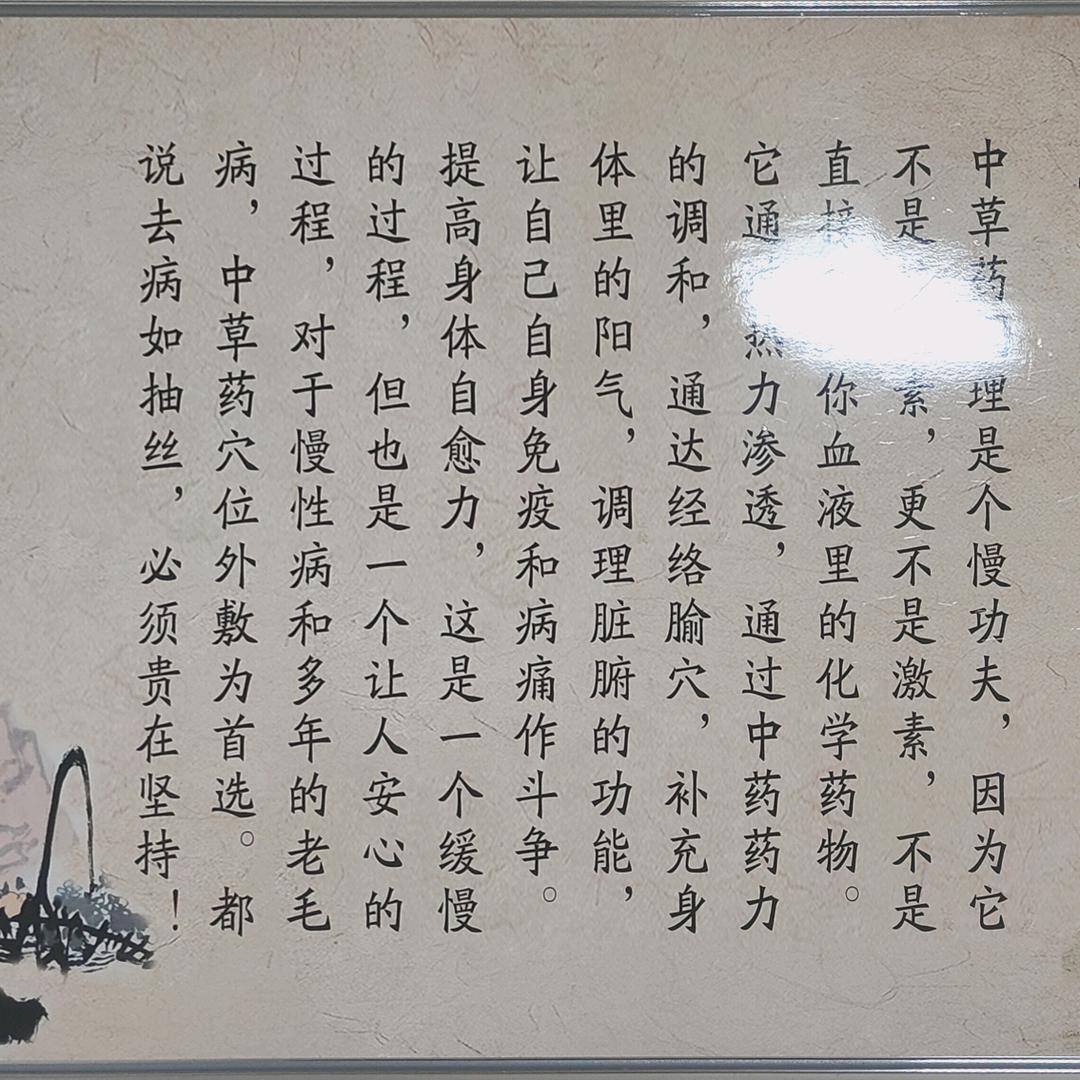 中草药理是个慢功夫，因为它
不是素，更不是激素，不是
直接你血液里的化学药物。
它通热力渗透，通过中药药力
的调和，通达经络腧穴，补充身
体里的阳气，调理脏腑的功能，
让自己自身免疫和病痛作斗争。
提高身体自愈力，这是一个缓慢
的过程，但也是一个让人安心的
过程，对于慢性病和多年的老毛
病，中草药穴位外敷为首选。都
说去病如抽丝，必须贵在坚持！